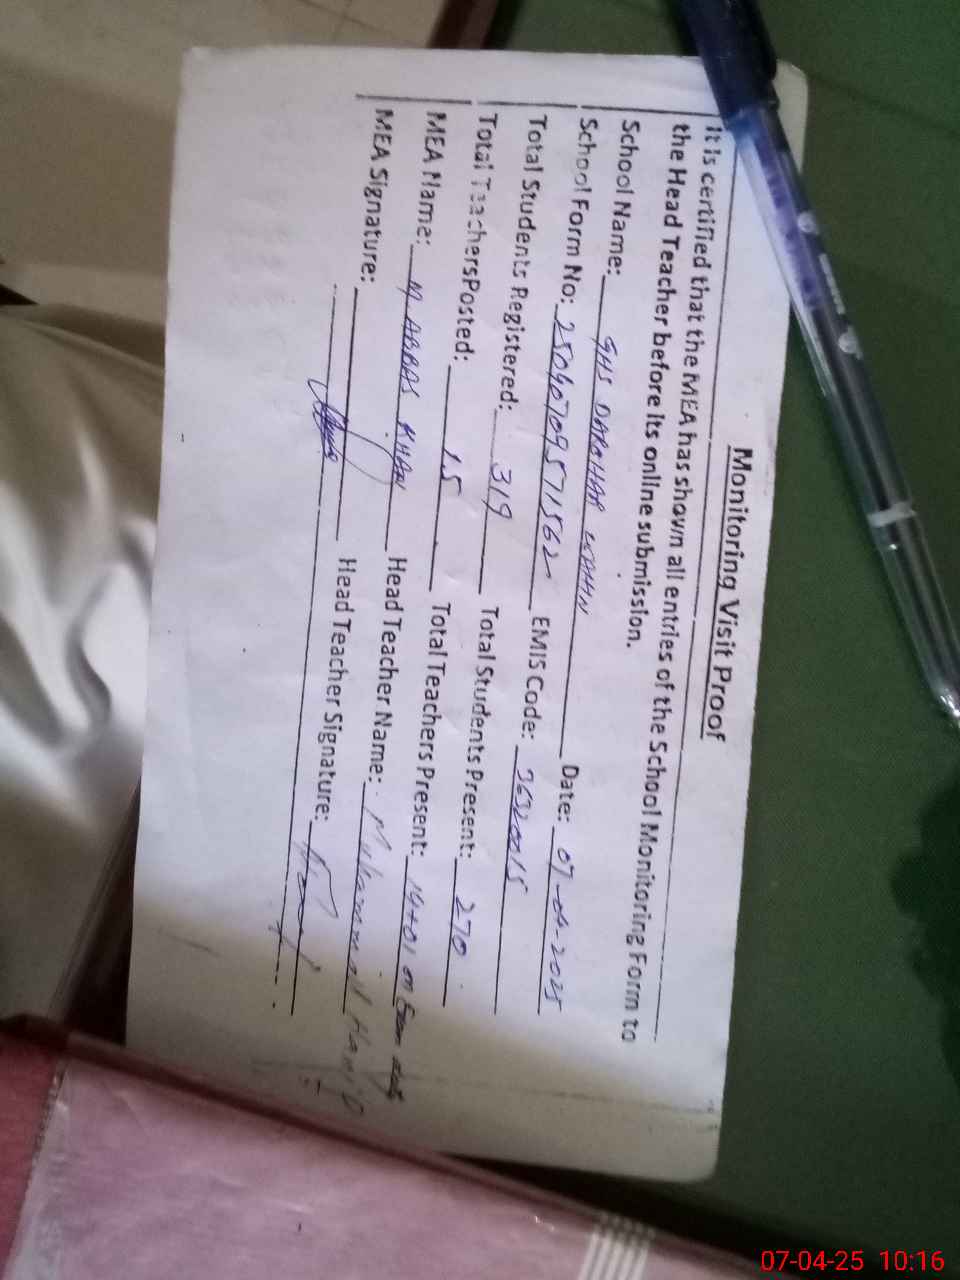 Monitoring Visit Proof
it is certified that the MEA has shown all entries of the School Monitoring Form to
the Head Teacher before its online submission.
School Name: GHS Date: 07-04-2025
School Form No: 250407095711562 EMIS Code: 36320015
Total Students Registered: 319 Total Students Present: 270
Total Teachers Posted: 15 Total Teachers Present: 14+01 on Exam duty
MEA Name: M ABBAS KHAN Head Teacher Name: Muhammad Hamid
MEA Signature: Head Teacher Signature:
07-04-25 10:16